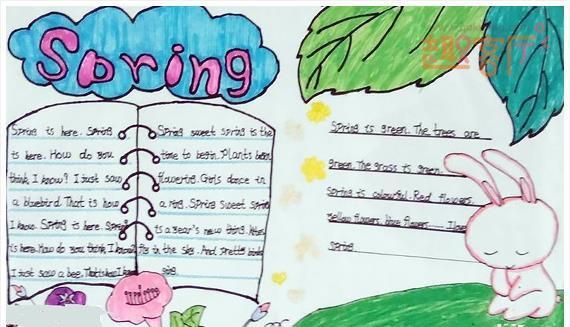 Spring
Spring is here. Spring
is here. How do you
think I know? I just saw
a bluebird. That is how
I know. Spring is here. Spring
is here. How do you think I know?
I just saw a bee. That is how I know
Spring sweet spring is the
time to begin. Plants begin
flowering. Girls dance in
a ring. Spring sweet spring
is a year's new thing. Kites
fly in the sky. And pretty birds
sing.
Spring is green. The trees are
green. The grass is green.
Spring is colourful. Red flowers.
Yellow flowers. blue flowers...... I love
spring.
趣客厅